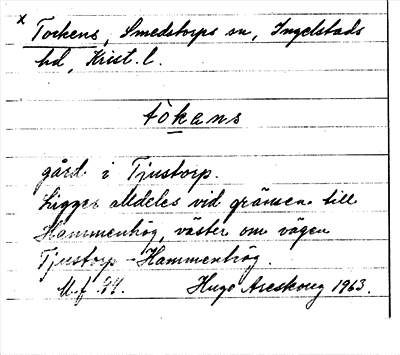 x Tockens, Smedstorps sn, Ingelstads
hd, Krist. l.
tòkens
gård i Tjustorp.
Ligger alldeles vid gränsen till
Hammenhög, väster om vägen
Tjustorp - Hammenhög.
U.f. 44. Hugo Areskoug 1963.